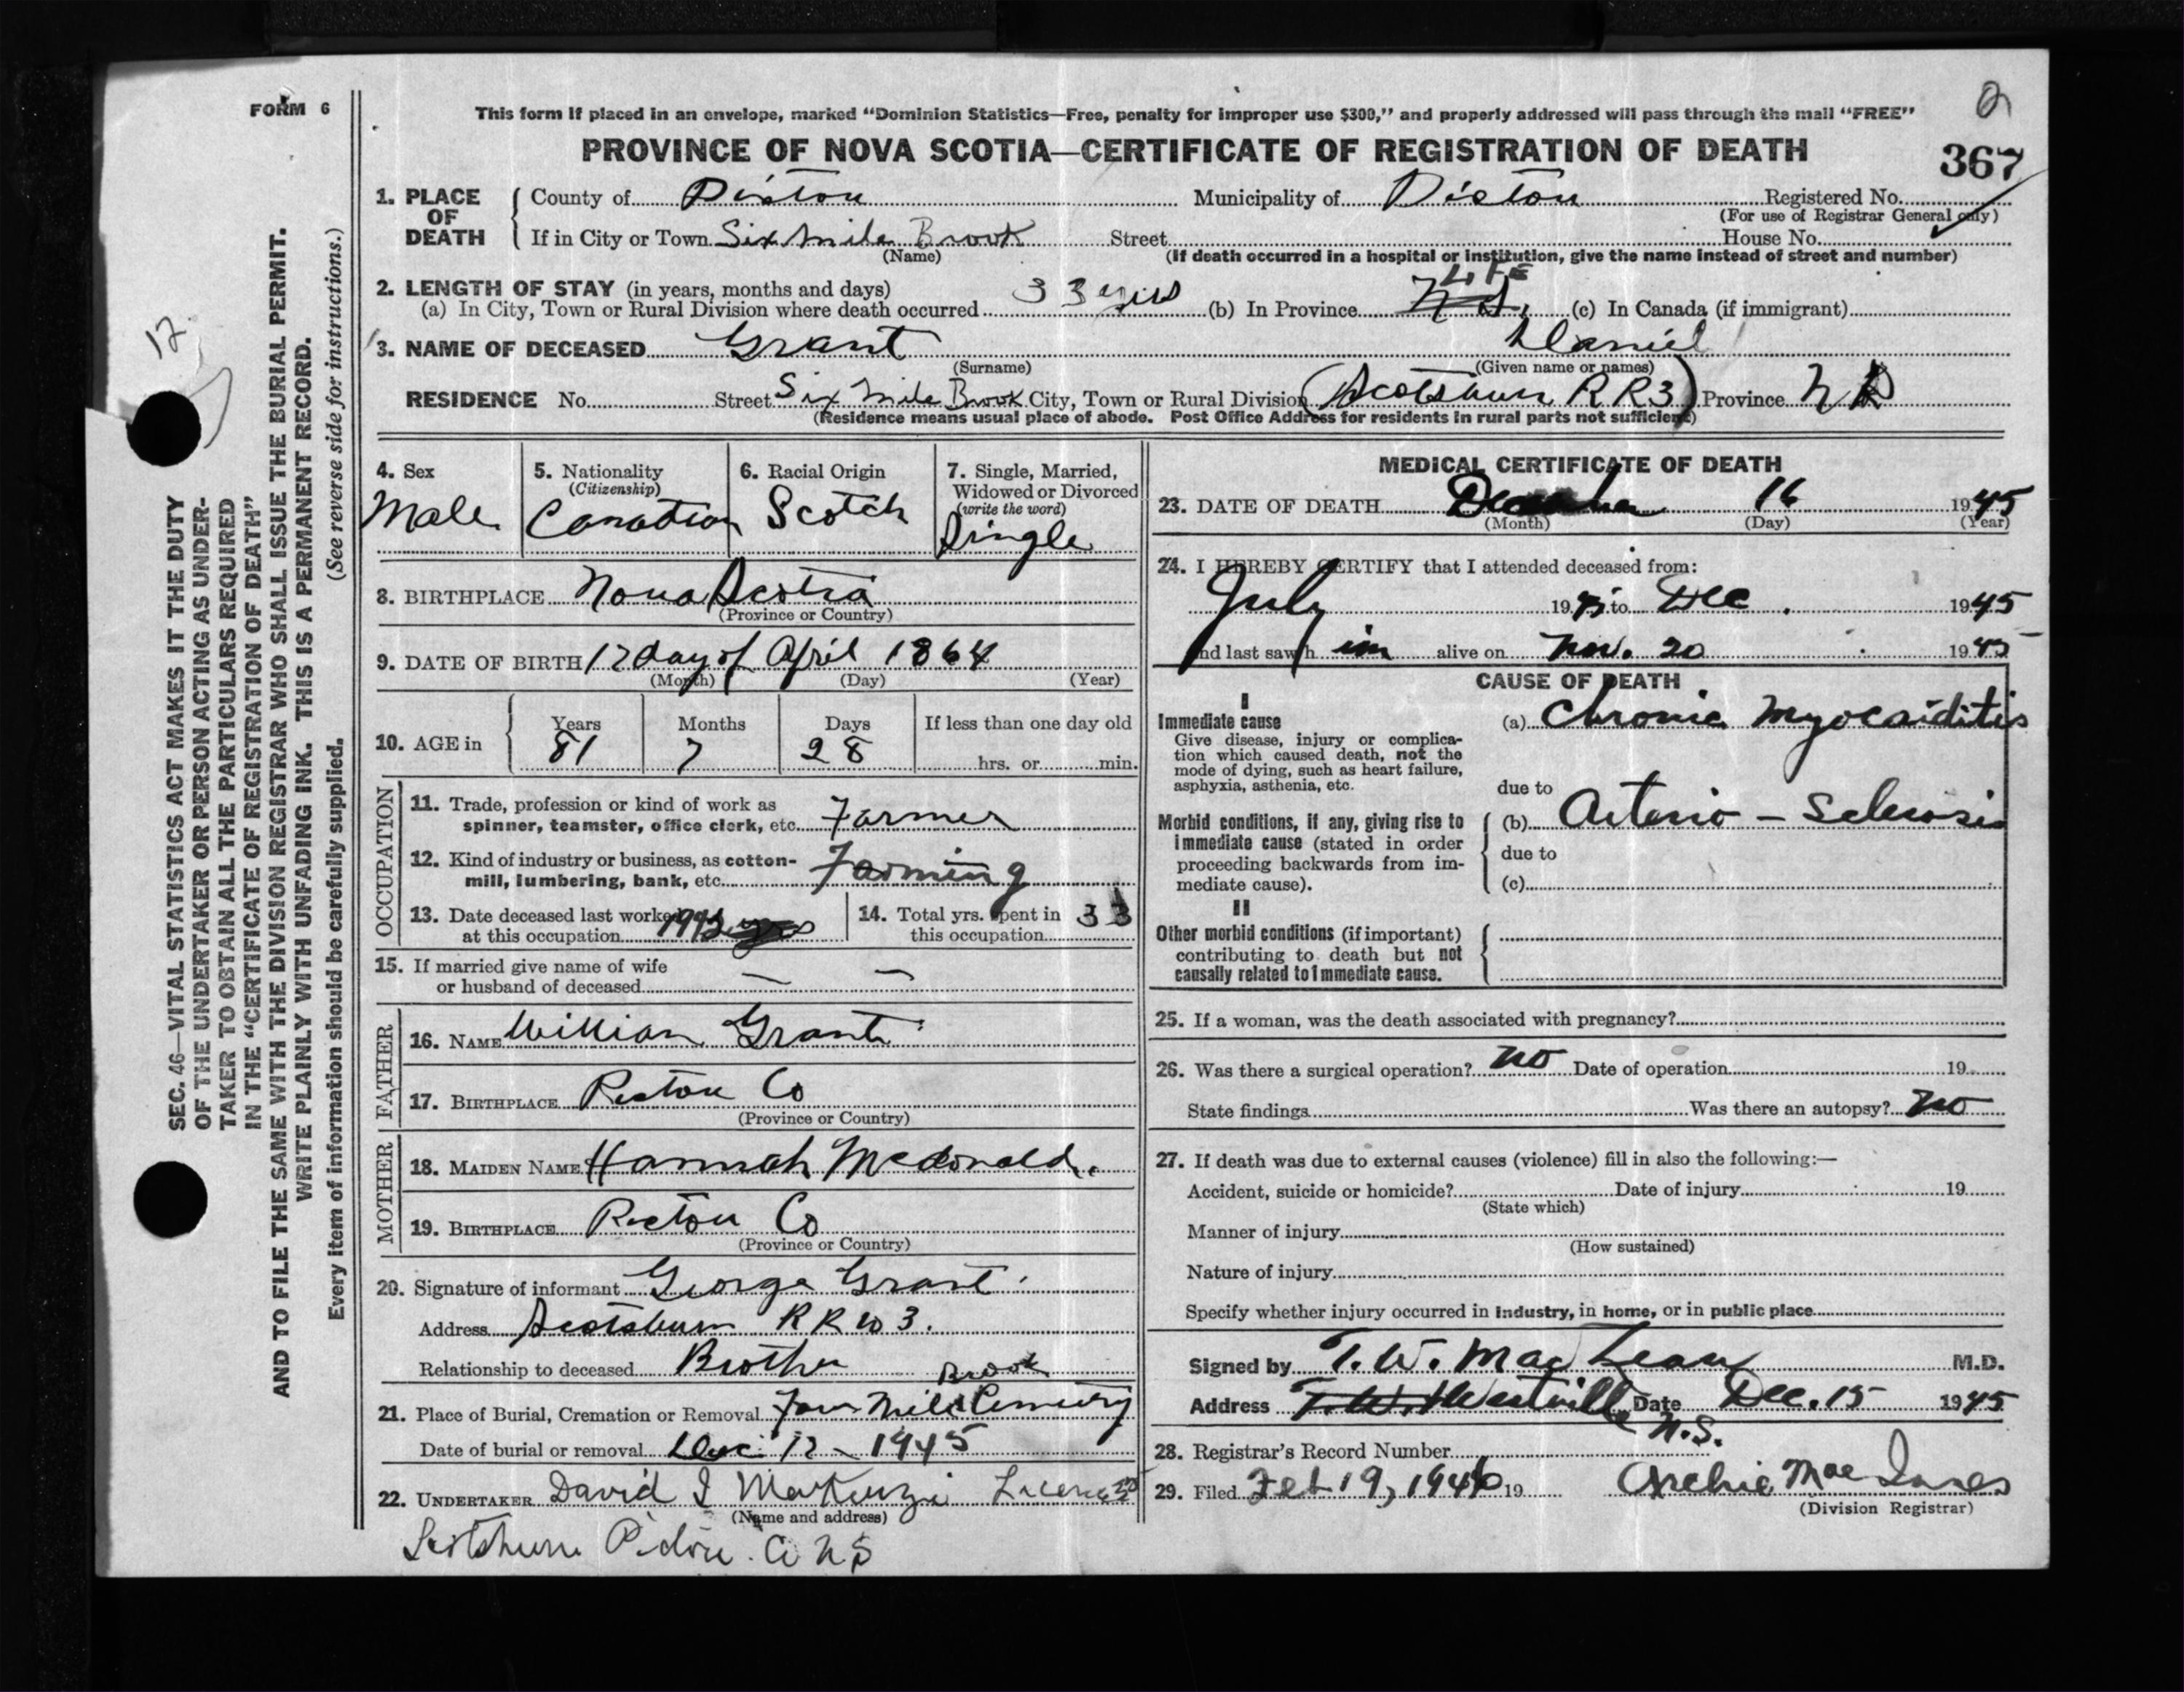 2
FORM 6
This form if placed in an envelope, marked “Dominion Statistics—Free, penalty for improper use $300,” and properly addressed will pass through the mail “FREE”
PROVINCE OF NOVA SCOTIA—CERTIFICATE OF REGISTRATION OF DEATH
367
1. PLACE OF DEATH
County of Pictou Municipality of Pictou Registered No.
(For use of Registrar General only)
If in City or Town Six Mile Brook Street House No.
(Name) (If death occurred in a hospital or institution, give the name instead of street and number)
2. LENGTH OF STAY (in years, months and days)
(a) In City, Town or Rural Division where death occurred 33 yrs (b) In Province N S LIFE (c) In Canada (if immigrant)
3. NAME OF DECEASED Grant Daniel
(Surname) (Given name or names)
RESIDENCE No. Street Six Mile Brook City, Town or Rural Division (Scotsburn R R 3) Province N S
(Residence means usual place of abode. Post Office Address for residents in rural parts not sufficient)
4. Sex
Male
5. Nationality
(Citizenship)
Canadian
6. Racial Origin
Scotch
7. Single, Married,
Widowed or Divorced
(write the word)
Single
8. BIRTHPLACE Nova Scotia
(Province or Country)
9. DATE OF BIRTH 12 day of April 1864
(Month) (Day) (Year)
10. AGE in
Years Months Days If less than one day old
81 7 28 hrs. or min.
OCCUPATION
11. Trade, profession or kind of work as
spinner, teamster, office clerk, etc. Farmer
12. Kind of industry or business, as cotton-
mill, lumbering, bank, etc. Farming
13. Date deceased last worked
at this occupation
14. Total yrs. spent in
this occupation 33
15. If married give name of wife
or husband of deceased — —
FATHER
16. NAME William Grant
17. BIRTHPLACE Pictou Co
(Province or Country)
MOTHER
18. MAIDEN NAME Hannah McDonald.
19. BIRTHPLACE Pictou Co
(Province or Country)
20. Signature of informant George Grant
Address Scotsburn R R No 3.
Relationship to deceased Brother
21. Place of Burial, Cremation or Removal Four Mile Brook Cemetery
Date of burial or removal Dec 12 1945
22. UNDERTAKER David I MacKenzie
(Name and address)
Scotsburn Pictou Co N S
MEDICAL CERTIFICATE OF DEATH
23. DATE OF DEATH December 16 1945
(Month) (Day) (Year)
24. I HEREBY CERTIFY that I attended deceased from:
July 1945 to Dec. 1945
and last saw h im alive on Nov. 20 1945
CAUSE OF DEATH
I
Immediate cause
Give disease, injury or complica-
tion which caused death, not the
mode of dying, such as heart failure,
asphyxia, asthenia, etc.
(a) Chronic Myocarditis
due to
Morbid conditions, if any, giving rise to
immediate cause (stated in order
proceeding backwards from im-
mediate cause).
(b) Arterio - Sclerosis
due to
(c)
II
Other morbid conditions (if important)
contributing to death but not
causally related to immediate cause.
25. If a woman, was the death associated with pregnancy?
26. Was there a surgical operation? No Date of operation 19
State findings Was there an autopsy? No
27. If death was due to external causes (violence) fill in also the following:—
Accident, suicide or homicide? Date of injury 19
(State which)
Manner of injury
(How sustained)
Nature of injury
Specify whether injury occurred in industry, in home, or in public place
Signed by T. W. MacLean M.D.
Address T. W. Westville N.S. Date Dec. 15 1945
28. Registrar’s Record Number
29. Filed Feb 19, 1946 19 Archie MacInnes
(Division Registrar)
12
SEC. 46—VITAL STATISTICS ACT MAKES IT THE DUTY
OF THE UNDERTAKER OR PERSON ACTING AS UNDER-
TAKER TO OBTAIN ALL THE PARTICULARS REQUIRED
IN THE “CERTIFICATE OF REGISTRATION OF DEATH”
AND TO FILE THE SAME WITH THE DIVISION REGISTRAR WHO SHALL ISSUE THE BURIAL PERMIT.
WRITE PLAINLY WITH UNFADING INK. THIS IS A PERMANENT RECORD.
Every item of information should be carefully supplied. (See reverse side for instructions.)